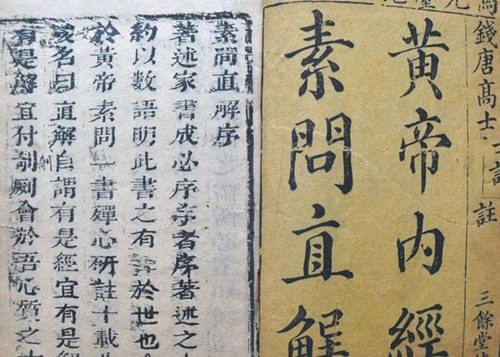 錢唐高士
註
三餘堂
黃帝內經
素問直解
素問直解序
著述家書成必序者序著述之
約以數語明此書之有於世也
於黃帝素問一書殫心研註十載
名曰直解自謂有是經宜有是
有是解宜付剞劂會於語心質之